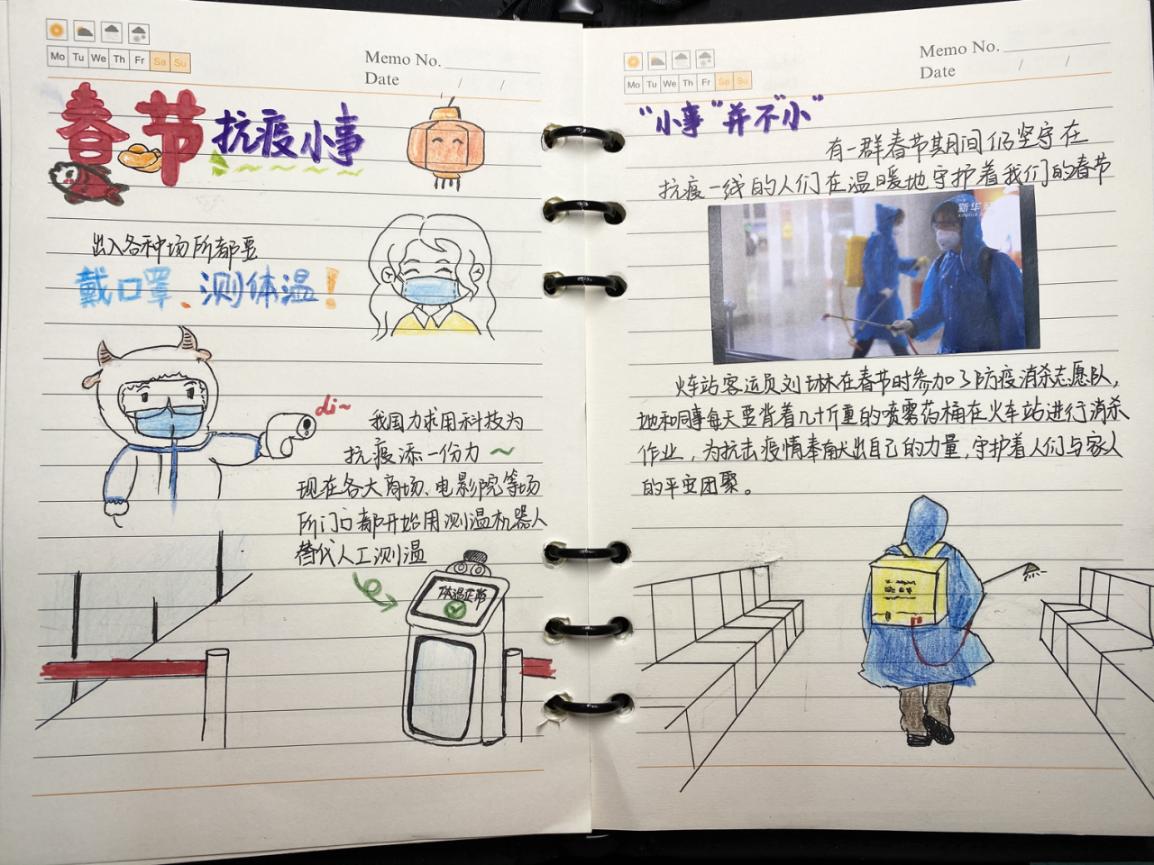 Mo Tu We Th Fr Sa Su
Memo No.
Date / /
春节抗疫小事
出入各种场所都要
戴口罩、测体温！
di~
我国力求用科技为
抗疫添一份力~
现在各大商场、电影院等场
所门口都开始用测温机器人
替代人工测温
体温正常
Mo Tu We Th Fr Sa Su
Memo No.
Date / /
“小事”并不“小”
有一群春节期间仍坚守在
抗疫一线的人们在温暖地守护着我们的春节
新华
火车站客运员刘琳在春节时参加了防疫消杀志愿队，
她和同事每天要背着几十斤重的喷雾药桶在火车站进行消杀
作业，为抗击疫情奉献出自己的力量，守护着人们与家人
的平安团聚。